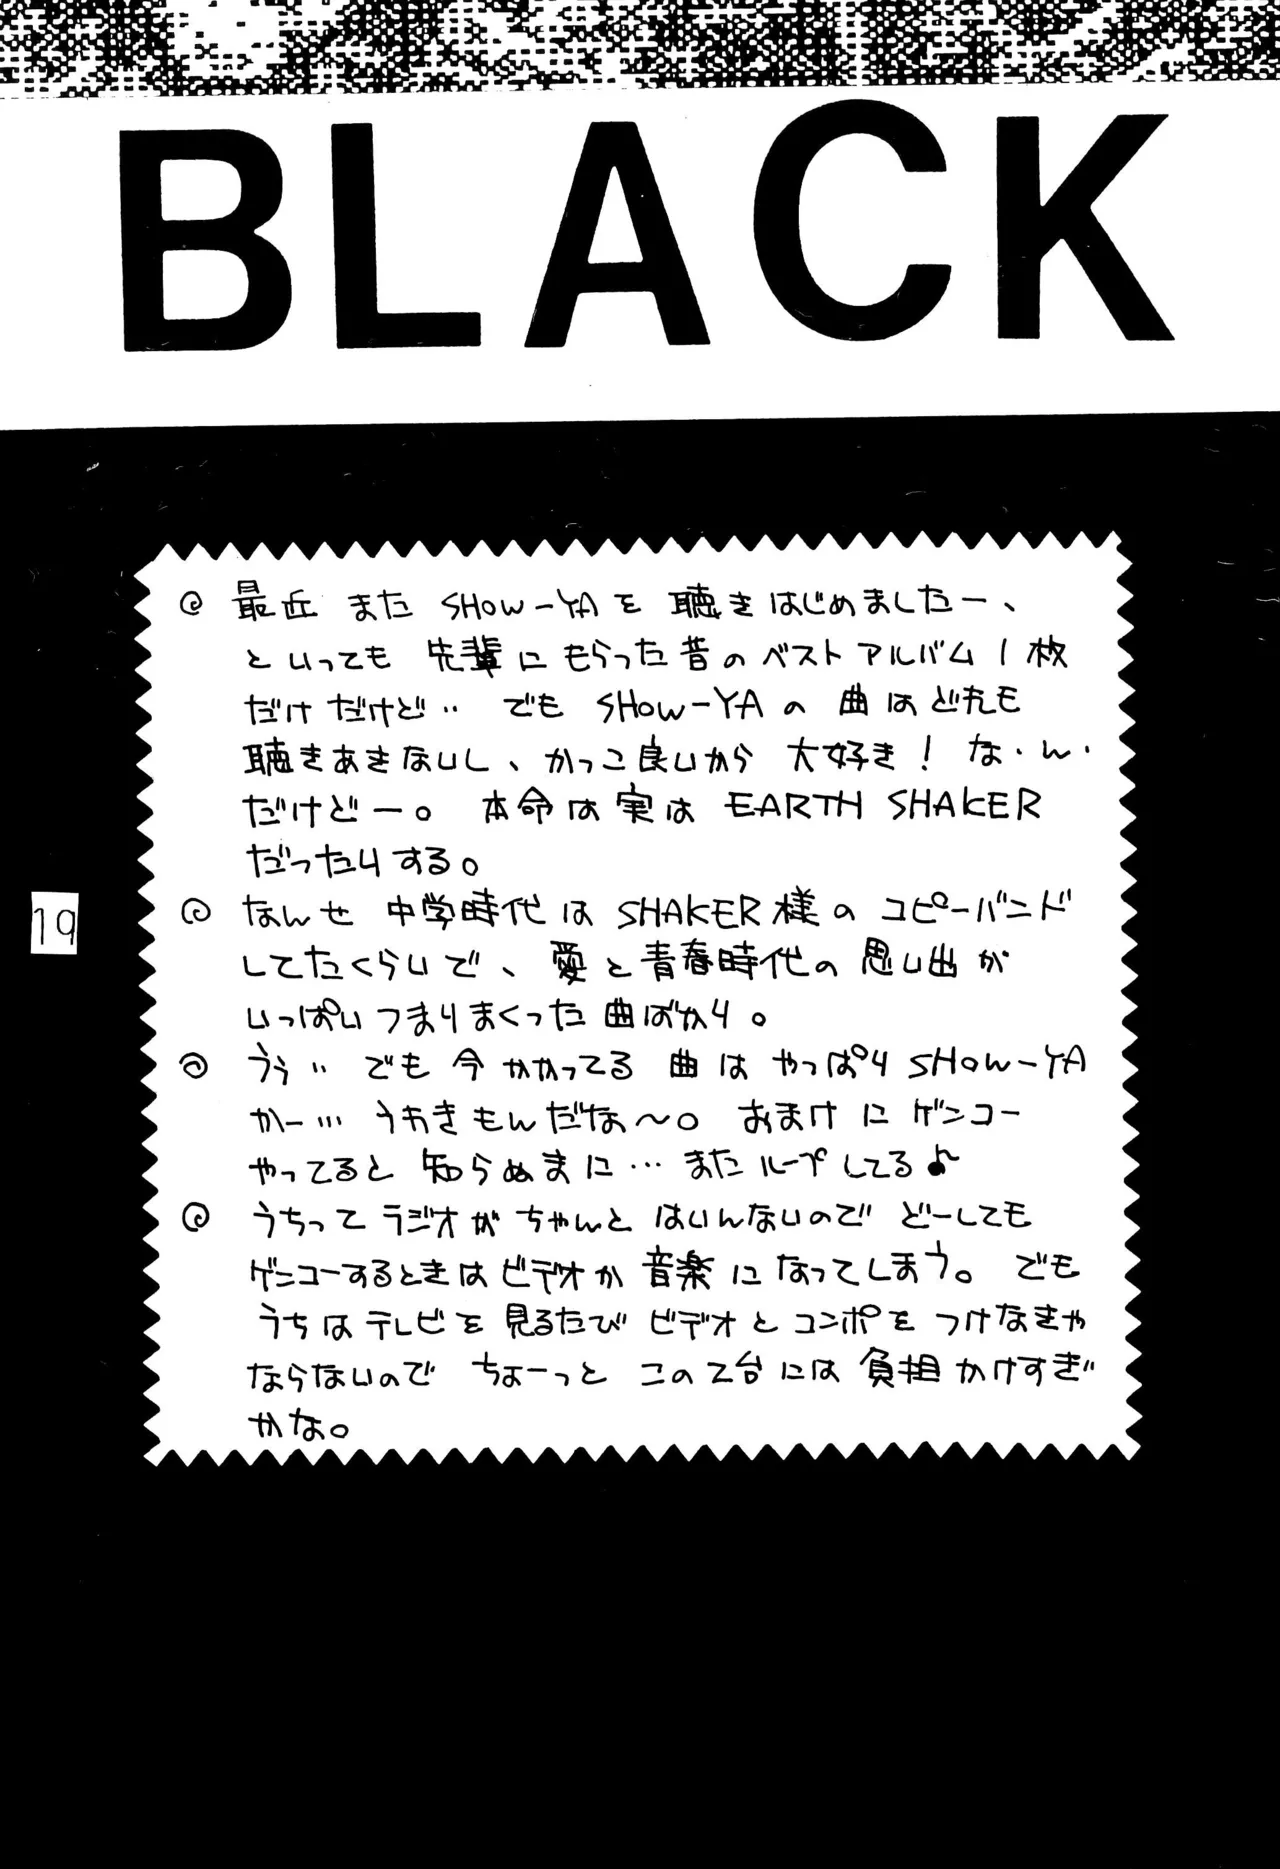 BLACK
◎ 最近 また SHOW-YAを 聴きはじめましたー、
といっても 先輩にもらった昔のベストアルバム1枚
だけだけど‥ でも SHOW-YAの 曲はどれも
聴きあきないし、かっこ良いから 大好き! な・ん・
だけどー。 本命は実は EARTH SHAKER
だったりする。
◎ なんせ 中学時代は SHAKER様の コピーバンド
してたくらいで、 愛と青春時代の 思い出が
いっぱいつまりまくった 曲ばかり。
◎ うぅ‥ でも 今かかってる 曲は やっぱり SHOW-YA
かー… うわきもんだな〜。 おまけに ゲンコー
やってると 知らぬまに… またループしてる♪
◎ うちって ラジオが ちゃんと はいんないので どーしても
ゲンコーするときは ビデオか 音楽になってしまう。 でも
うちはテレビを 見るたび ビデオと コンポを つけなきゃ
ならないので ちょーっと この2台には 負担 かけすぎ
かな。
19